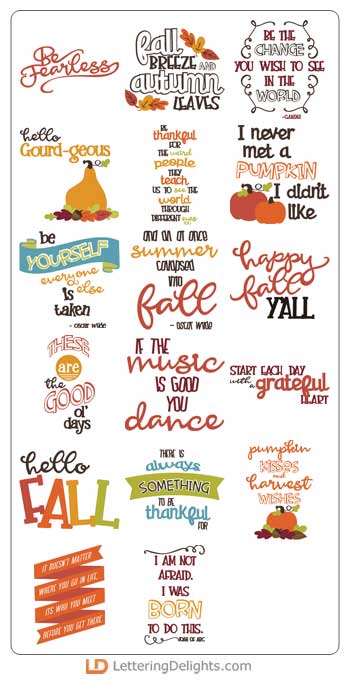 Be
Fearless
fall
BREEZE AND
autumn
LEAVES
BE THE
CHANGE
YOU WISH TO SEE
IN THE
WORLD
-GANDHI
hello
Gourd-geous
be
thankful
FOR
the weird
people
THEY
teach
US TO see THE
world
THROUGH
DIFFERENT eyes
I never
met a
PUMPKIN
I didn't
like
be
YOURSELF
everyone
else
is
taken
- oscar wilde
and all at once
summer
collapsed
INTO
fall
- oscar wilde
happy
fall
Y'ALL
THESE
are
the
GOOD
ol'
days
IF THE
music
IS GOOD
YOU
dance
START EACH DAY
with a grateful
HEART
hello
FALL
THERE IS
always
SOMETHING
TO BE
thankful
FOR
pumpkin
kisses
and
harvest
WISHES
IT DOESN'T MATTER
WHERE YOU GO IN LIFE,
ITS WHO YOU MEET
BEFORE YOU GET THERE.
I AM NOT
AFRAID.
I WAS
BORN
TO DO THIS.
JOAN OF ARC
LD LetteringDelights.com